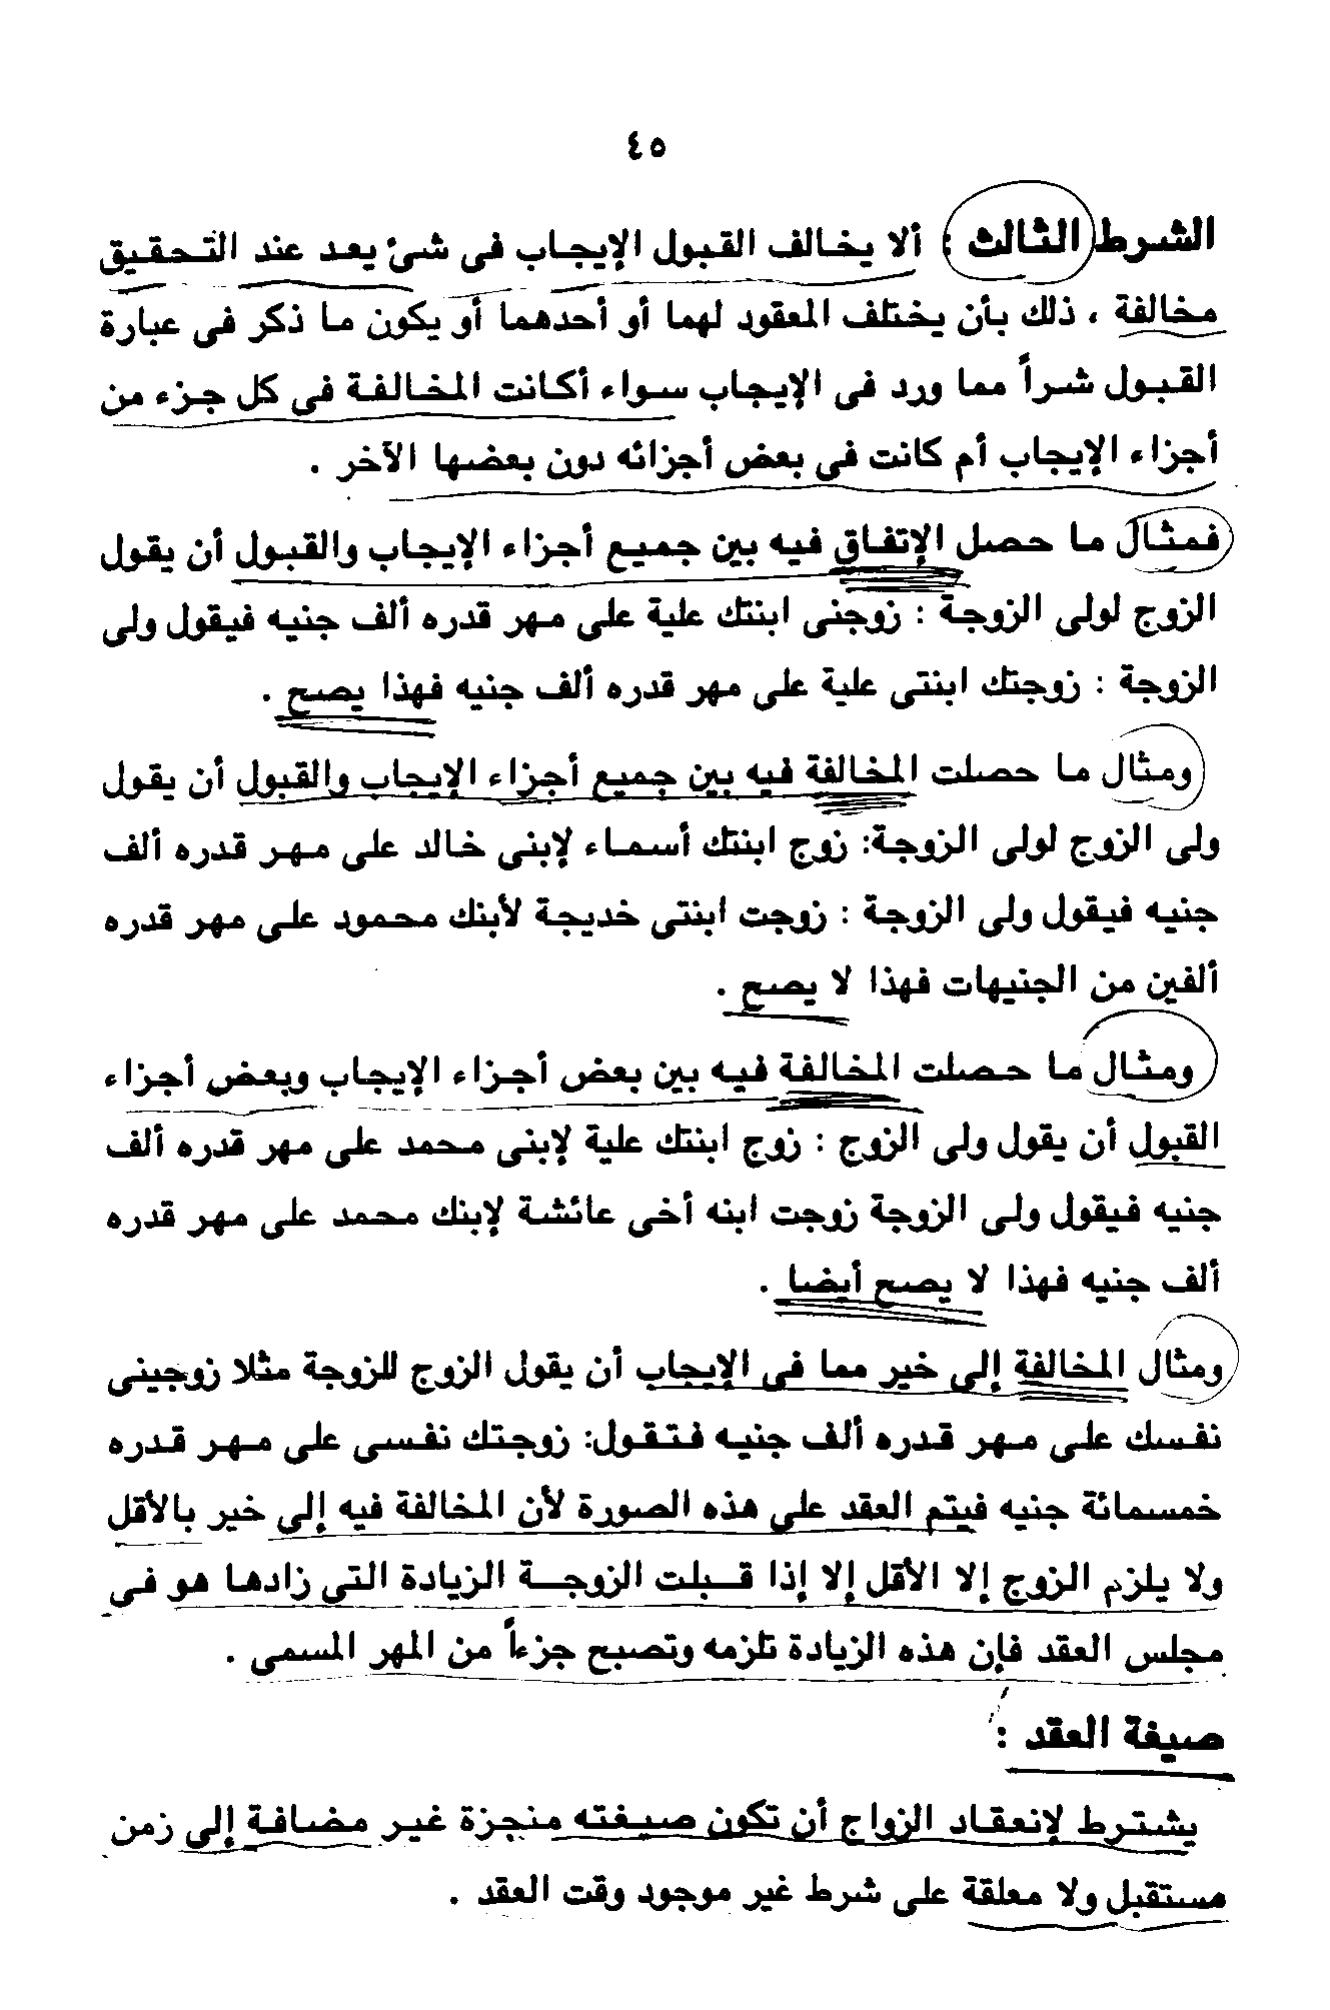 ٤٥
الشرط الثالث : ألا يخالف القبول الإيجاب فى شئ يعد عند التحقيق
مخالفة ، ذلك بأن يختلف المعقود لهما أو أحدهما أو يكون ما ذكر فى عبارة
القبول شراً مما ورد فى الإيجاب سواء أكانت المخالفة فى كل جزء من
أجزاء الإيجاب أم كانت فى بعض أجزائه دون بعضها الآخر .
فمثال ما حصل الإتفاق فيه بين جميع أجزاء الإيجاب والقبول أن يقول
الزوج لولى الزوجة : زوجنى ابنتك علية على مهر قدره ألف جنيه فيقول ولى
الزوجة : زوجتك ابنتى علية على مهر قدره ألف جنيه فهذا يصح .
ومثال ما حصلت المخالفة فيه بين جميع أجزاء الإيجاب والقبول أن يقول
ولى الزوج لولى الزوجة: زوج ابنتك أسماء لإبنى خالد على مهر قدره ألف
جنيه فيقول ولى الزوجة : زوجت ابنتى خديجة لأبنك محمود على مهر قدره
ألفين من الجنيهات فهذا لا يصح .
ومثال ما حصلت المخالفة فيه بين بعض أجزاء الإيجاب وبعض أجزاء
القبول أن يقول ولى الزوج : زوج ابنتك علية لإبنى محمد على مهر قدره ألف
جنيه فيقول ولى الزوجة زوجت ابنه أخى عائشة لإبنك محمد على مهر قدره
ألف جنيه فهذا لا يصح أيضا .
ومثال المخالفة إلى خير مما فى الإيجاب أن يقول الزوج للزوجة مثلا زوجينى
نفسك على مهر قدره ألف جنيه فتقول: زوجتك نفسى على مهر قدره
خمسمائة جنيه فيتم العقد على هذه الصورة لأن المخالفة فيه إلى خير بالأقل
ولا يلزم الزوج إلا الأقل إلا إذا قبلت الزوجة الزيادة التى زادها هو فى
مجلس العقد فإن هذه الزيادة تلزمه وتصبح جزءاً من المهر المسمى .
صيغة العقد :
يشترط لإنعقاد الزواج أن تكون صيغته منجزة غير مضافة إلى زمن
مستقبل ولا معلقة على شرط غير موجود وقت العقد .